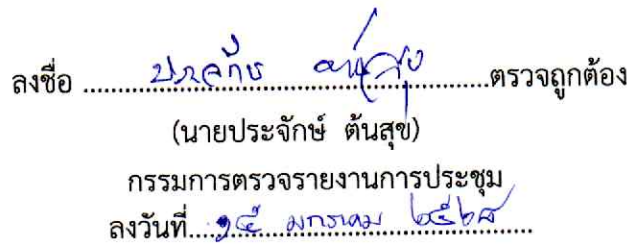 ลงชื่อ ........ประจักษ์ ต้นสุข........ตรวจถูกต้อง
(นายประจักษ์ ต้นสุข)
กรรมการตรวจรายงานการประชุม
ลงวันที่....๑๕ มกราคม ๒๕๖๘....